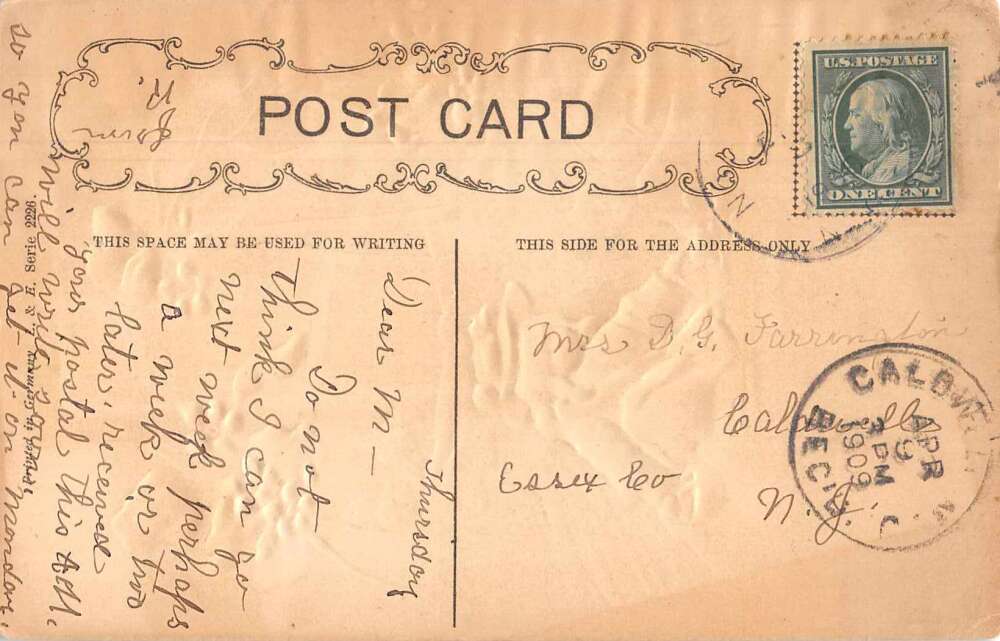 POST CARD
U.S. POSTAGE
ONE CENT
THIS SPACE MAY BE USED FOR WRITING
THIS SIDE FOR THE ADDRESS ONLY
Thursday
Dear M—
Do not
think I can go
next week perhaps
a week or two
later. received
your postal this A.M.
Will write you
so you can get it on Monday.
Mrs D. G. Farrington
Caldwell
Essex Co
N. J.
CALDWELL
N. J.
APR
9
PM
1909
REC'D
Printed in Germany
& H. Serie 2226.